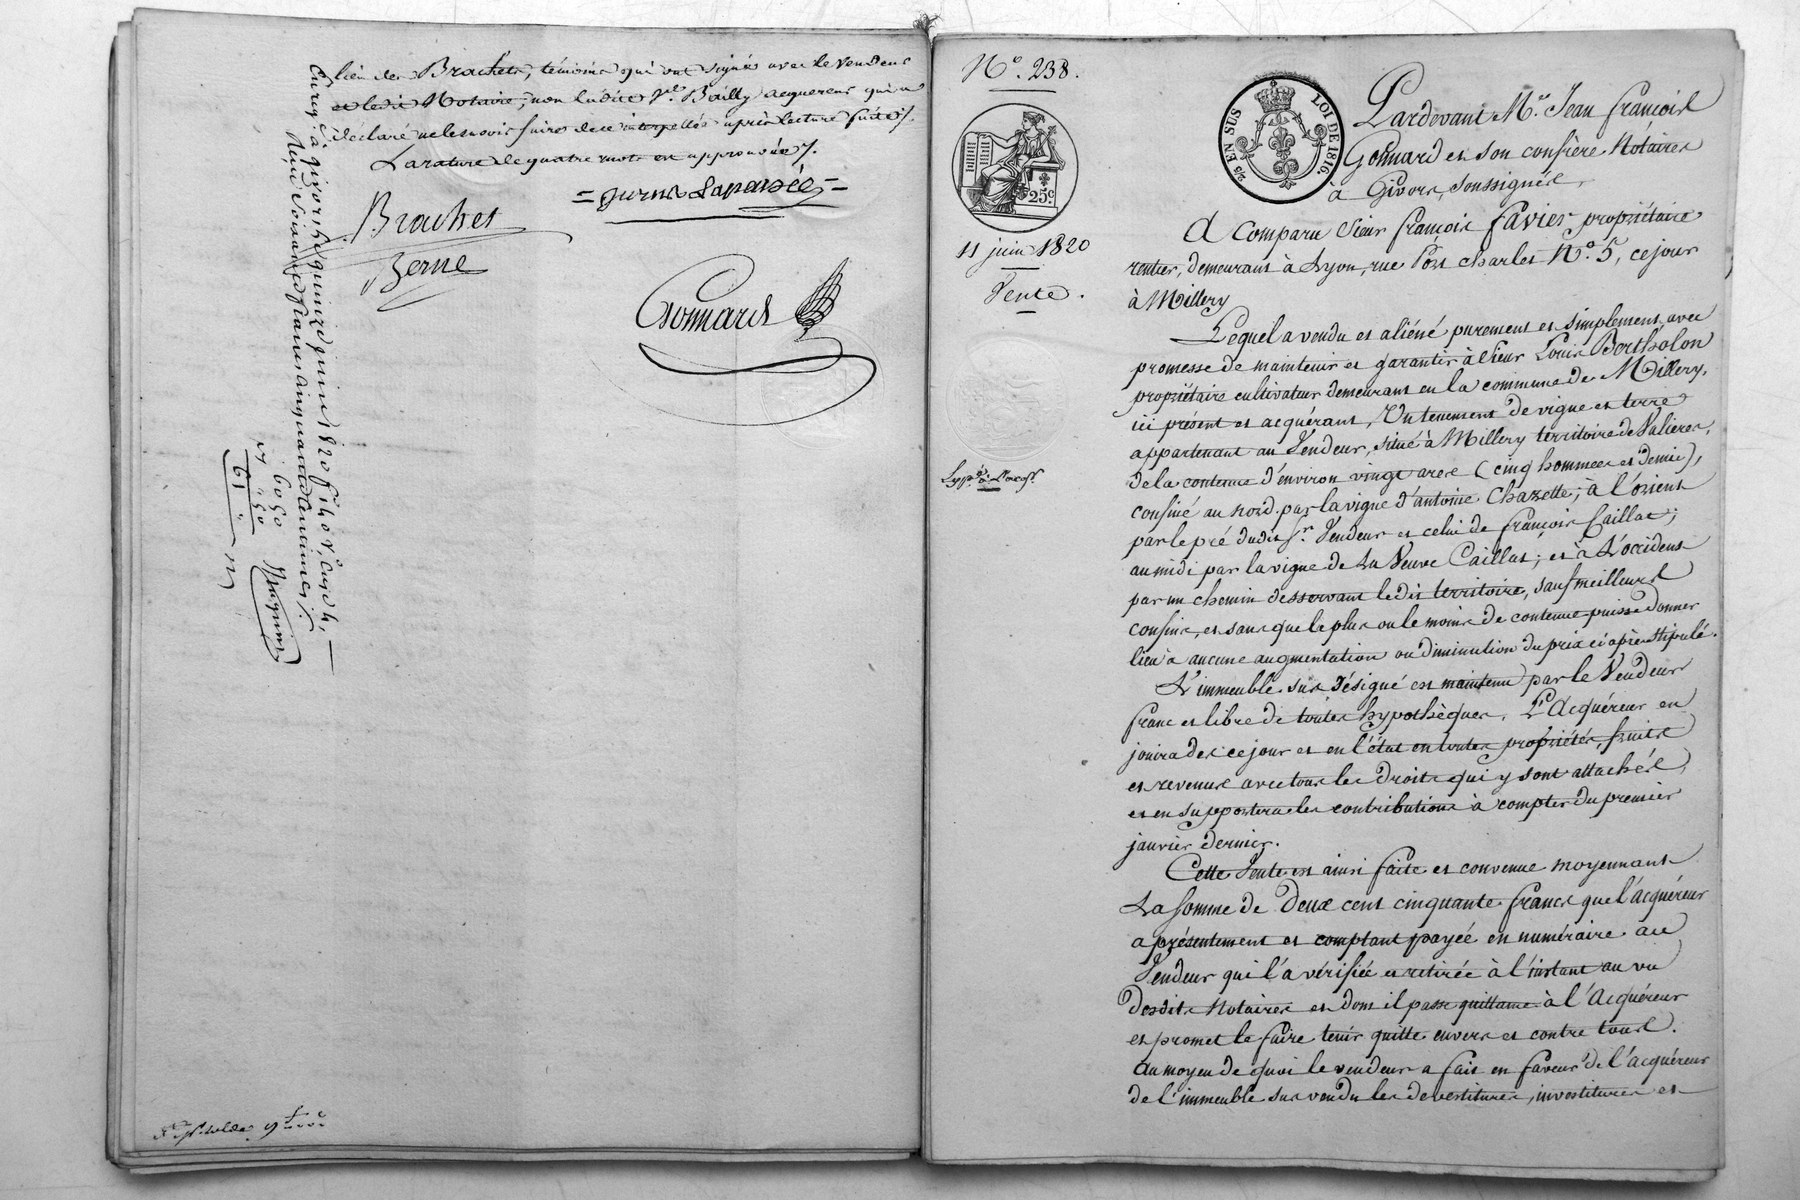 lieu des Brachets, témoins qui ont signé avec le vendeur
et ledit Notaire, non ledit Sr. Bailly acquéreur qui a
déclaré ne le savoir faire de ce interpellés après lecture faite /.
La rature de quatre mots est approuvée /.
= jurne Laparsée =
Brachet
Berne
Gonnard
Enreg. à givors le quinze juin 1820 f.
Reçu soixante francs cinquante centimes /.
60 50
6 50
N°. 238.
25 c.
11 juin 1820
Vente.
25 EN SUS
LOI DE 1816.
Pardevant Me. Jean françois
Gonnard et son confrère Notaires
à Givors, soussignés,
A Comparu Sieur françois Favier propriétaire
rentier, demeurant à Lyon, rue Port Charles N°. 5, ce jour
à Millery
Lequel a vendu et aliéné purement et simplement avec
promesse de maintenir et garantir à Sieur Louis Bertholon
propriétaire cultivateur demeurant en la commune de Millery,
ici présent et acquérant, Un tenement de vigne et terre
appartenant au Vendeur, situé à Millery territoire de Valières,
de la contenue d'environ vingt ares (cinq hommées et demie),
confiné au nord par la vigne d'antoine Chazette; à l'orient
par le pré dudit Sr. Vendeur et celui de françois Caillat;
au midi par la vigne de La Veuve Caillat; et à L'occident
par un chemin desservant ledit territoire, sauf meilleurs
confins, et sans que le plus ou le moins de contenue puisse donner
lieu à aucune augmentation ou diminution du prix ci après stipulé.
L'immeuble sus désigné est maintenu par le Vendeur
franc et libre de toutes hypothèques. L'Acquéreur en
jouira dès ce jour et en l'état en toutes propriétés, fruits
et revenus avec tous les droits qui y sont attachés,
et en supportera les contributions à compter du premier
janvier dernier.
Cette Vente est ainsi faite et convenue moyennant
La Somme de Deux cent cinquante francs que l'acquéreur
a présentement et comptant payée en numéraire au
Vendeur qui l'a vérifiée et retirée à l'instant au vu
desdits Notaires et dont il passe quittance à l'Acquéreur
et promet le faire tenir quitte envers et contre tous.
Au moyen de quoi le vendeur a fait en faveur de l'acquéreur
de l'immeuble sus vendu les devestitures, investitures et